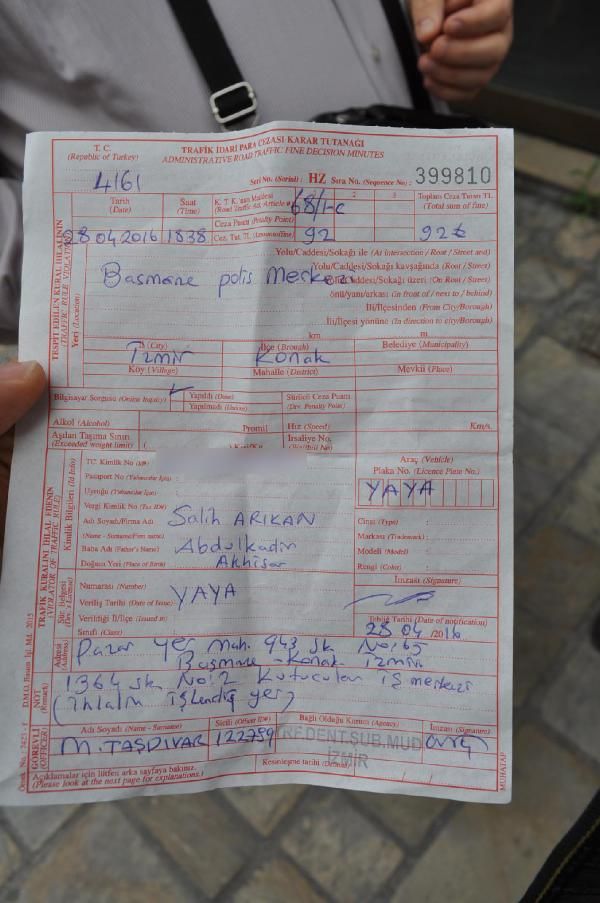 T. C.
(Republic of Turkey)
TRAFİK İDARİ PARA CEZASI KARAR TUTANAĞI
ADMINISTRATIVE ROAD TRAFFIC FINE DECISION MINUTES
4161
Seri No. (Serial) : HZ Sıra No. (Sequence No) : 399810
Tarih
(Date)
Saat
(Time)
K. T. K.'nun Maddesi
(Road Traffic Sd. Article #)
68/1-c
2
3
Toplam Ceza Tutarı TL.
(Total sum of fine)
Ceza Puanı (Penalty Point)
28 04 2016 1838
92
92 ₺
TESPİT EDİLEN KURAL İHLALİNİN
(TRAFFIC RULE VIOLATION)
Yeri (Location)
Yolu/Caddesi/Sokağı ile (At intersection / Root / Street and)
Yolu/Caddesi/Sokağı kavşağında (Root / Street)
Basmane polis Merkezi
Caddesi/Sokağı üzeri (On Root / Street)
önü/yanı/arkası (in front of / next to / behind)
İli/İlçesinden (From City/Borough)
İli/İlçesi yönüne (In direction to city/Borough)
km
m
İli (City)
İlçe (Brough)
Belediye (Municipality)
İzmir
Konak
Köy (Village)
Mahalle (District)
Mevkii (Place)
Bilgisayar Sorgusu (Online Inquiry)
Yapıldı (Done)
Yapılmadı (Undone)
Sürücü Ceza Puanı
(Drv. Penalty Point)
Alkol (Alcohol)
Promil
Hız (Speed)
Km/s.
Aşılan Taşıma Sınırı
(Exceeded weight limit)
İrsaliye No.
TRAFİK KURALINI İHLAL EDENİN
(VIOLATOR OF TRAFFIC RULE)
Kimlik Bilgileri (Id Info)
TC. Kimlik No (Id#)
Araç (Vehicle)
Plaka No. (Licence Plate No.)
Pasaport No (Yabancılar İçin)
YAYA
Uyruğu (Yabancılar İçin)
Vergi Kimlik No (Tax ID#)
Adı Soyadı/Firma Adı
(Name - Surname/Firm name)
Salih ARIKAN
Cinsi (Type)
Markası (Trademark)
Baba Adı (Father's Name)
Abdulkadir
Modeli (Model)
Doğum Yeri (Place of Birth)
Akhisar
Rengi (Color)
İmzası (Signature)
Sür. Belgesi
Numarası (Number)
YAYA
Veriliş Tarihi (Date of Issue)
Verildiği İl/İlçe (Issued in)
Tebliğ Tarihi (Date of notification)
Sınıfı (Class)
28 04 /2016
Adresi
(Address)
Pazar yer mah. 943 sk No: 65
Basmane - Konak İzmir
NOT
(Remark)
1364 sk No: 2 Kutucular iş merkezi
(ihlalin işlendiği yer)
GÖREVLİ
(OFFICER)
Adı Soyadı (Name - Surname)
Sicili (Officer ID#)
Bağlı Olduğu Kurum (Agency)
İmzası (Signature)
M. TAŞDIVAR
122799
TRF.DENT.ŞUB.MÜD
İZMİR
Açıklamalar için lütfen arka sayfaya bakınız.
(Please look at the next page for explanations.)
MUHATAP